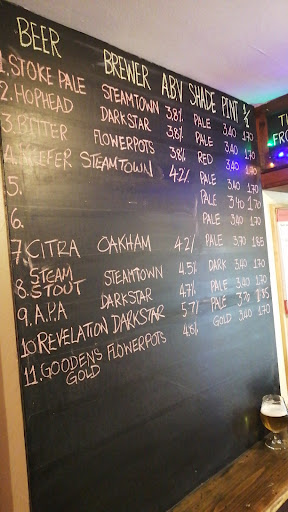 BEER BREWER ABV SHADE PINT ½
1. STOKE PALE STEAMTOWN 3.8% PALE 3.40 1.70
2. HOPHEAD DARKSTAR 3.8% PALE 3.40 1.70
3. BITTER FLOWERPOTS 3.8% RED 3.40 1.70
4. KEEFER STEAMTOWN 4.2% PALE 3.40 1.70
5. PALE 3.40 1.70
6. PALE 3.40 1.70
7. CITRA OAKHAM 4.2% PALE 3.70 1.85
8. STEAM STOUT STEAMTOWN 4.5% DARK 3.40 1.70
9. A.P.A DARKSTAR 4.7% PALE 3.40 1.70
10 REVELATION DARKSTAR 5.7% PALE 3.70 1.85
11. GOODENS GOLD FLOWERPOTS 4.8% GOLD 3.40 1.70
FRO